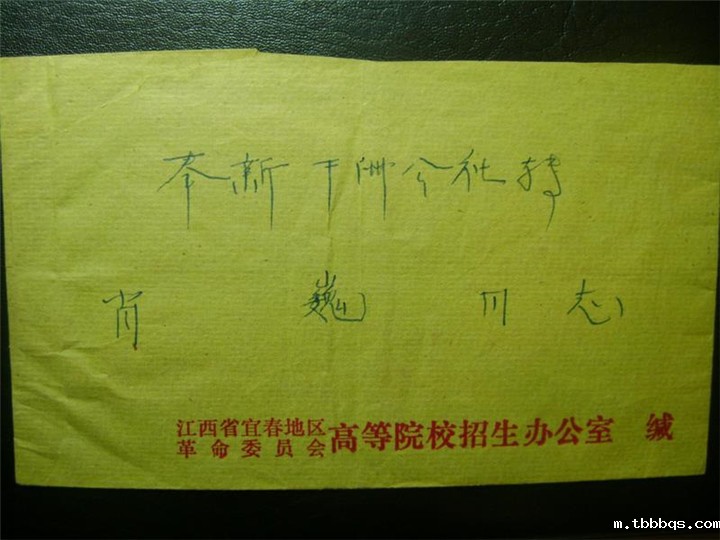 奉新干洲公社转
肖巍同志
江西省宜春地区
革命委员会
高等院校招生办公室 缄
m.tbbbqs.com